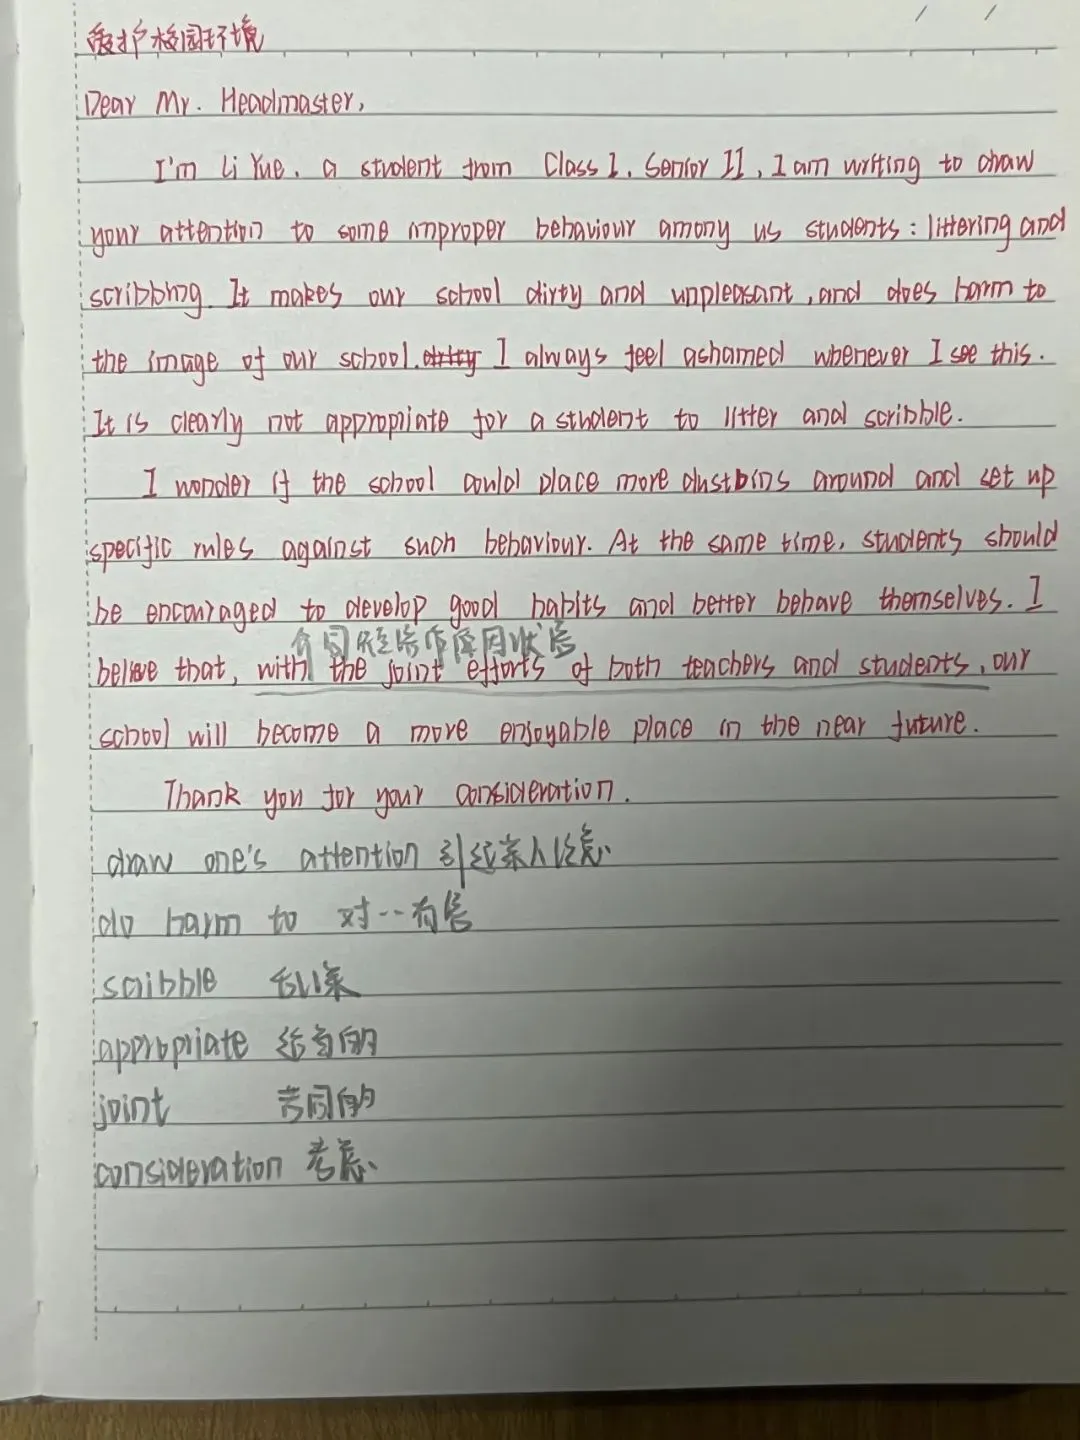 爱护校园环境
Dear Mr. Headmaster,
I'm Li Yue, a student from Class I, Senior II, I am writing to draw
your attention to some improper behaviour among us students: littering and
scribbing. It makes our school dirty and unpleasant, and does harm to
the image of our school. I always feel ashamed whenever I see this.
It is clearly not appropriate for a student to litter and scribble.
I wonder if the school could place more dustbins around and set up
specific rules against such behaviour. At the same time, students should
be encouraged to develop good habits and better behave themselves. I
介词短语作原因状语
believe that, with the joint efforts of both teachers and students, our
school will become a more enjoyable place in the near future.
Thank you for your consideration.
draw one's attention 引起某人注意
do harm to 对··有害
scribble 乱涂
appropriate 适当的
joint 共同的
consideration 考虑